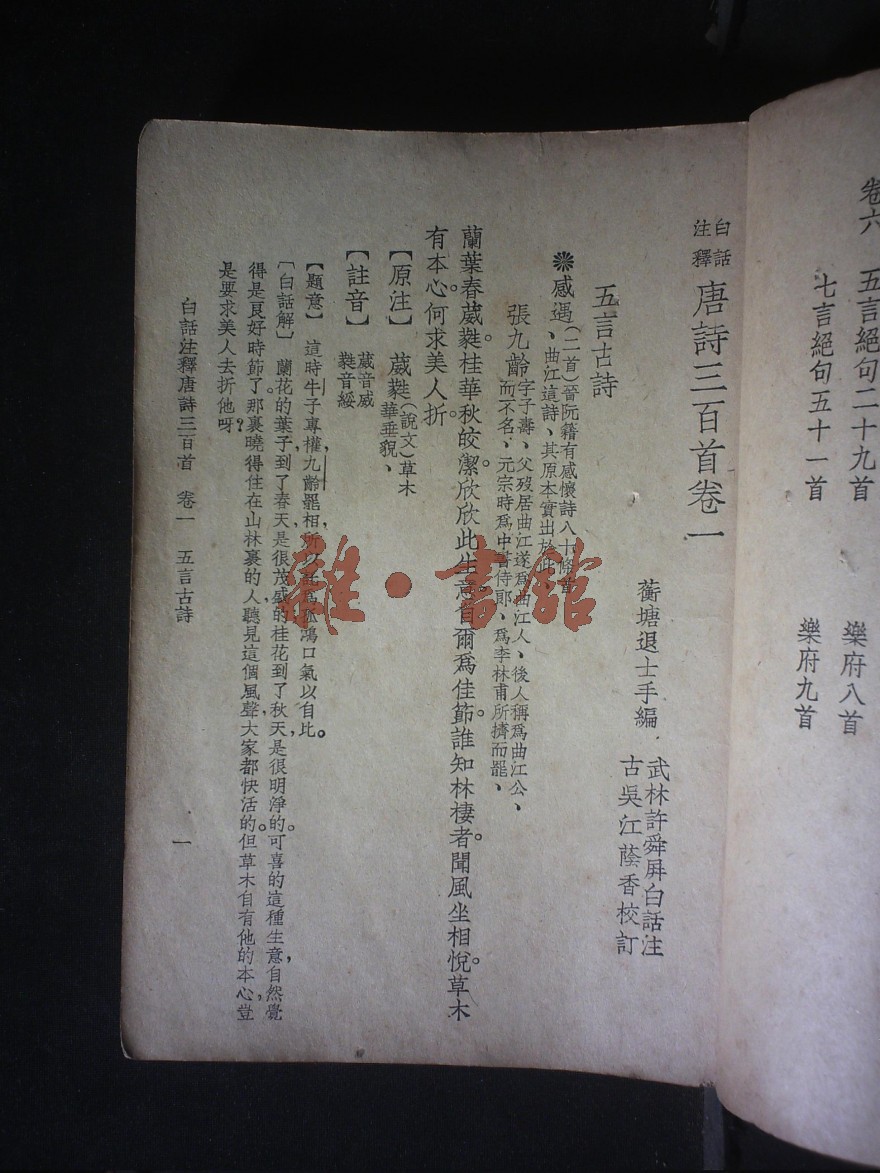 卷六　五言絕句二十九首　樂府八首
七言絕句五十一首　樂府九首
白話注釋　唐詩三百首卷一
蘅塘退士手編
武林許舜屏白話注
古吳江蔭香校訂
五言古詩
感遇(二首)晉阮籍有感懷詩八十餘首
曲江這詩、其原本實出於此、
張九齡字子壽、父歿居曲江遂爲曲江人、後人稱爲曲江公、
而不名、元宗時爲中書侍郎、爲李林甫所擠而罷、
蘭葉春葳蕤。桂華秋皎潔。欣欣此生意。自爾爲佳節。誰知林棲者。聞風坐相悅。草木
有本心。何求美人折。
【原注】　葳蕤(說文)草木
華垂貌、
【註音】　葳音威
蕤音綏
【題意】　這時牛子專權，九齡罷相，所以孤鴻口氣以自比。
〔白話解〕　蘭花的葉子，到了春天，是很茂盛的，桂花到了秋天，是很明淨的。可喜的這種生意，自然覺
得是良好時節了。那裏曉得住在山林裏的人，聽見這個風聲，大家都快活的。但草木自有他的本心，豈
是要求美人去折他呀？
白話注釋唐詩三百首　卷一　五言古詩　一
雜·書館